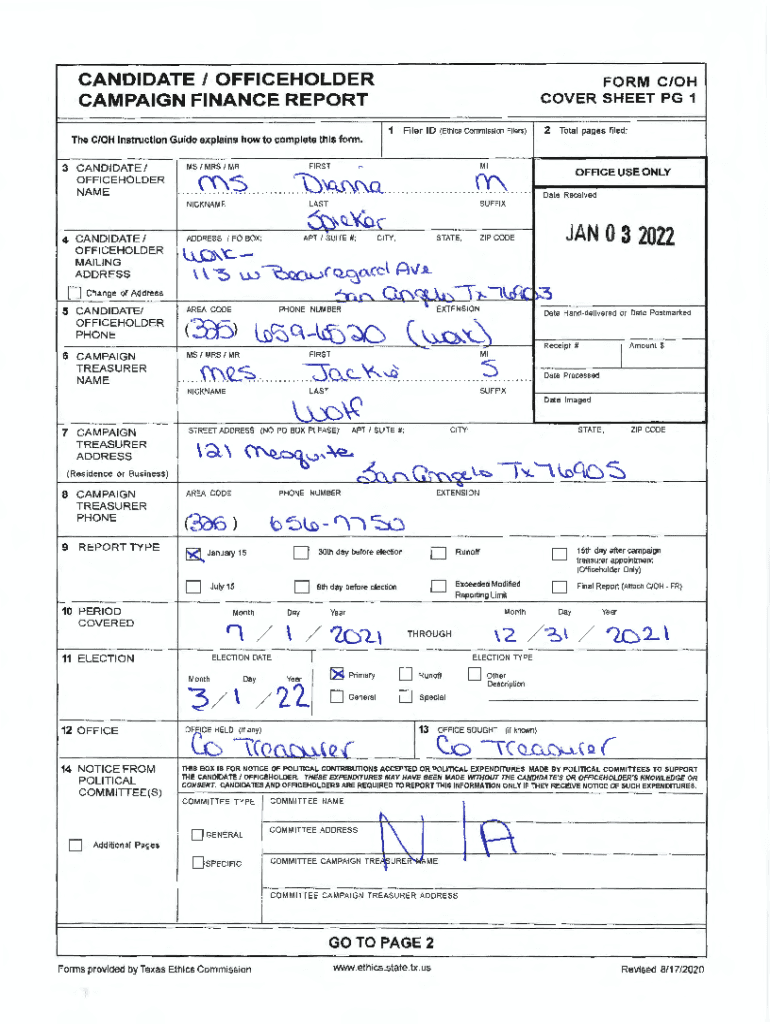 CANDIDATE / OFFICEHOLDER
CAMPAIGN FINANCE REPORT
FORM C/OH
COVER SHEET PG 1
The C/OH Instruction Guide explains how to complete this form.
1 Filer ID (Ethics Commission Filers)
2 Total pages filed:
3 CANDIDATE / OFFICEHOLDER NAME
MS / MRS / MR FIRST MI
MS Dianna M
NICKNAME LAST SUFFIX
Spieker
OFFICE USE ONLY
Date Received
JAN 03 2022
4 CANDIDATE / OFFICEHOLDER MAILING ADDRESS
Change of Address
ADDRESS / PO BOX; APT / SUITE #; CITY; STATE; ZIP CODE
work-
113 W Beauregard Ave
San Angelo Tx 76903
5 CANDIDATE/ OFFICEHOLDER PHONE
AREA CODE PHONE NUMBER EXTENSION
(325) 659-6520 (work)
Date Hand-delivered or Date Postmarked
Receipt # Amount $
Date Processed
Date Imaged
6 CAMPAIGN TREASURER NAME
MS / MRS / MR FIRST MI
mrs Jackie S
NICKNAME LAST SUFFIX
Wolf
7 CAMPAIGN TREASURER ADDRESS
(Residence or Business)
STREET ADDRESS (NO PO BOX PLEASE); APT / SUITE #; CITY; STATE; ZIP CODE
121 mesquite
San Angelo Tx 76905
8 CAMPAIGN TREASURER PHONE
AREA CODE PHONE NUMBER EXTENSION
(325) 656-7750
9 REPORT TYPE
January 15 30th day before election Runoff 15th day after campaign treasurer appointment (Officeholder Only)
July 15 8th day before election Exceeded Modified Reporting Limit Final Report (Attach C/OH - FR)
10 PERIOD COVERED
Month Day Year Month Day Year
7 / 1 / 2021 THROUGH 12 / 31 / 2021
11 ELECTION
ELECTION DATE ELECTION TYPE
Month Day Year
3 / 1 / 22
Primary Runoff Other Description
General Special
12 OFFICE
OFFICE HELD (if any)
Co Treasurer
13 OFFICE SOUGHT (if known)
Co Treasurer
14 NOTICE FROM POLITICAL COMMITTEE(S)
Additional Pages
THIS BOX IS FOR NOTICE OF POLITICAL CONTRIBUTIONS ACCEPTED OR POLITICAL EXPENDITURES MADE BY POLITICAL COMMITTEES TO SUPPORT
THE CANDIDATE / OFFICEHOLDER. THESE EXPENDITURES MAY HAVE BEEN MADE WITHOUT THE CANDIDATE'S OR OFFICEHOLDER'S KNOWLEDGE OR
CONSENT. CANDIDATES AND OFFICEHOLDERS ARE REQUIRED TO REPORT THIS INFORMATION ONLY IF THEY RECEIVE NOTICE OF SUCH EXPENDITURES.
COMMITTEE TYPE
GENERAL
SPECIFIC
COMMITTEE NAME
COMMITTEE ADDRESS
N/A
COMMITTEE CAMPAIGN TREASURER NAME
COMMITTEE CAMPAIGN TREASURER ADDRESS
GO TO PAGE 2
Forms provided by Texas Ethics Commission
www.ethics.state.tx.us
Revised 8/17/2020